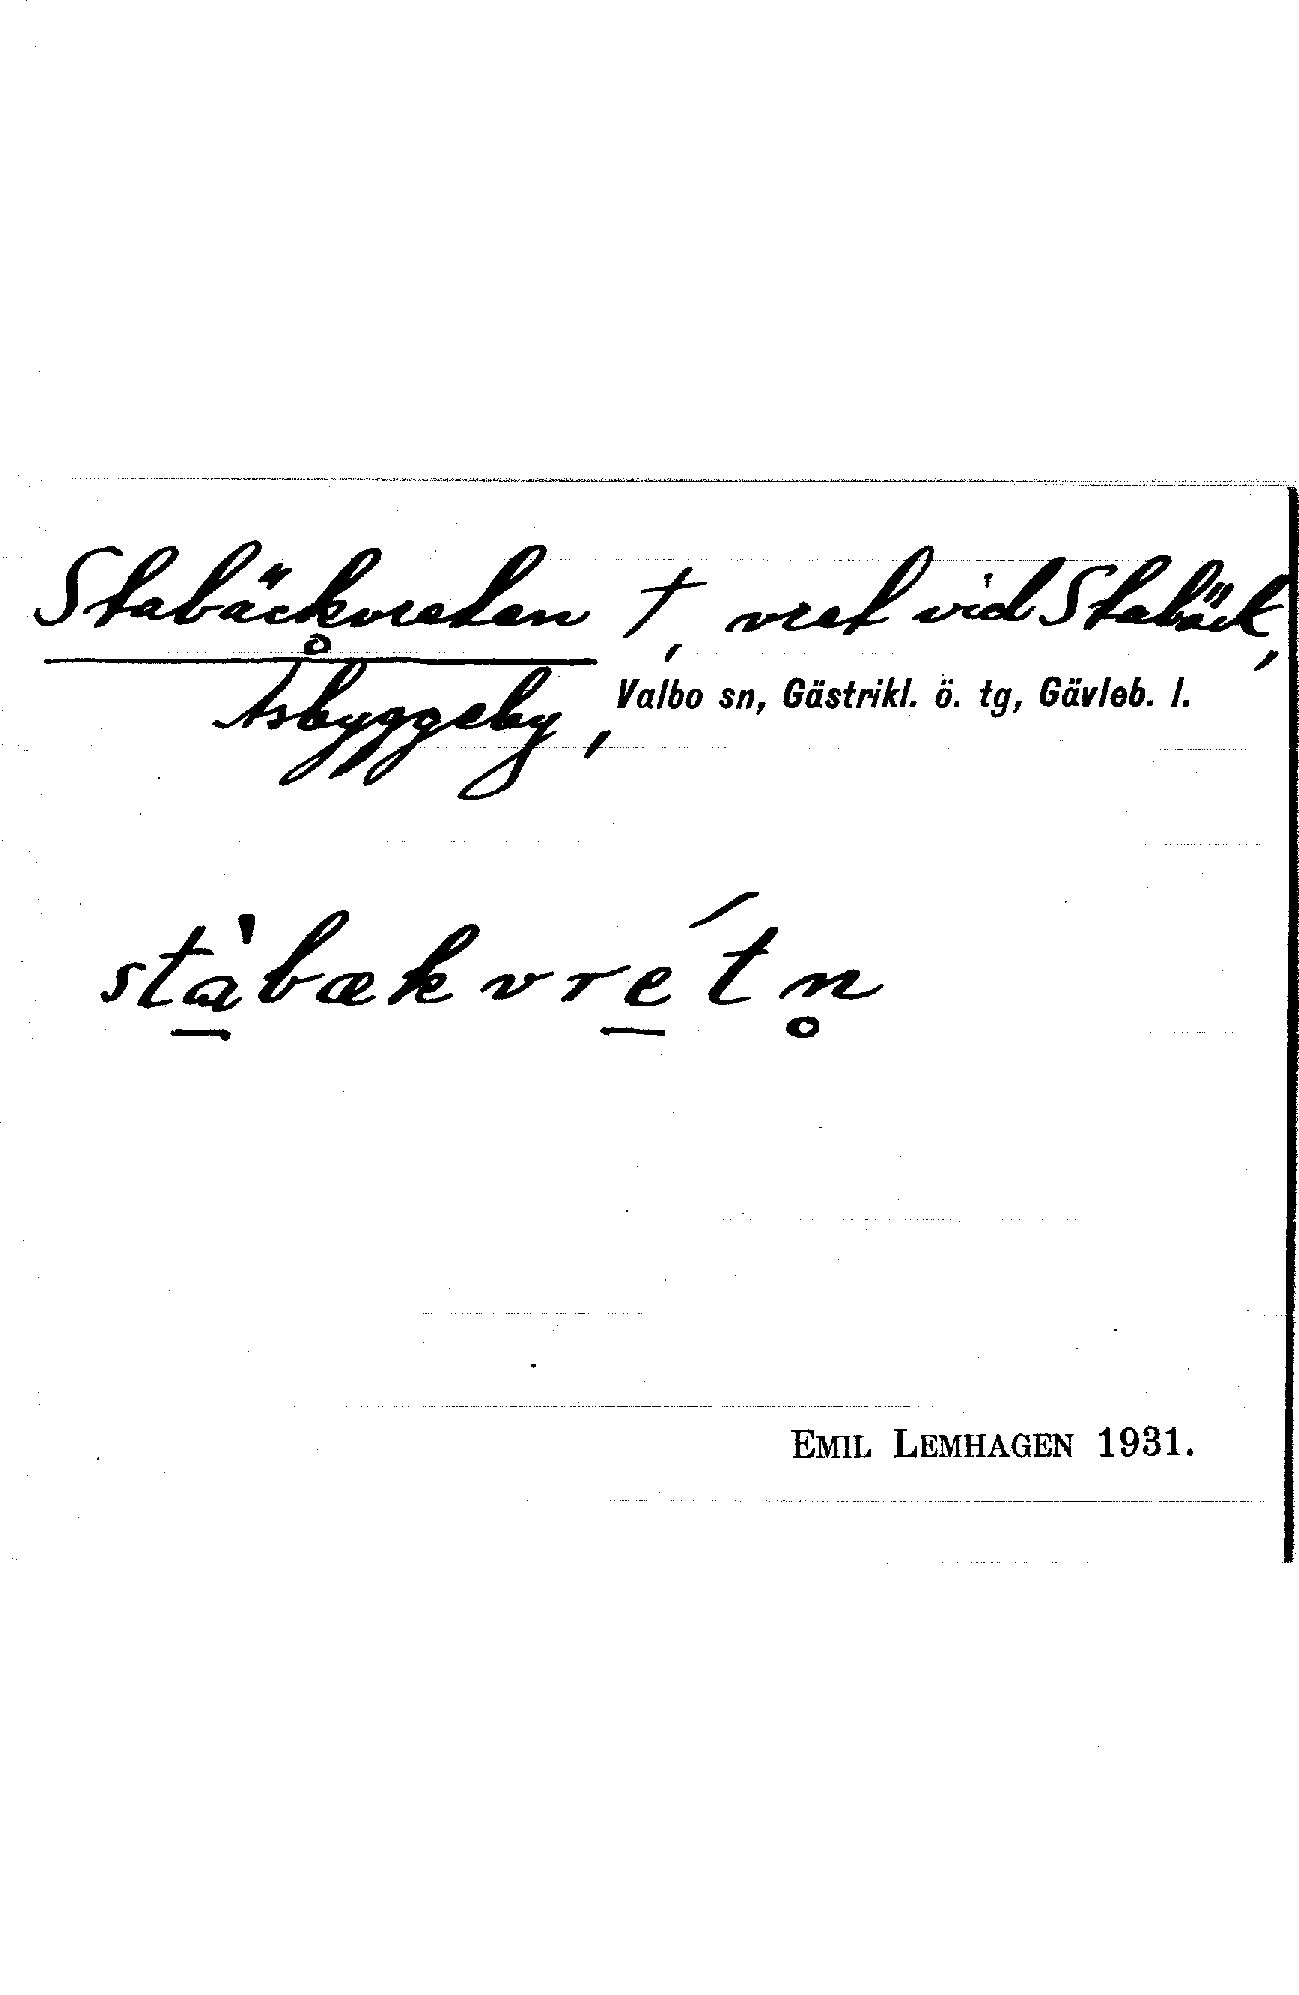 Stabäckvreten †, vret vid Stabäck,
Åsbyggeby, Valbo sn, Gästrikl. ö. tg, Gävleb. l.
stà̱bækvré̱tn̥
EMIL LEMHAGEN 1931.